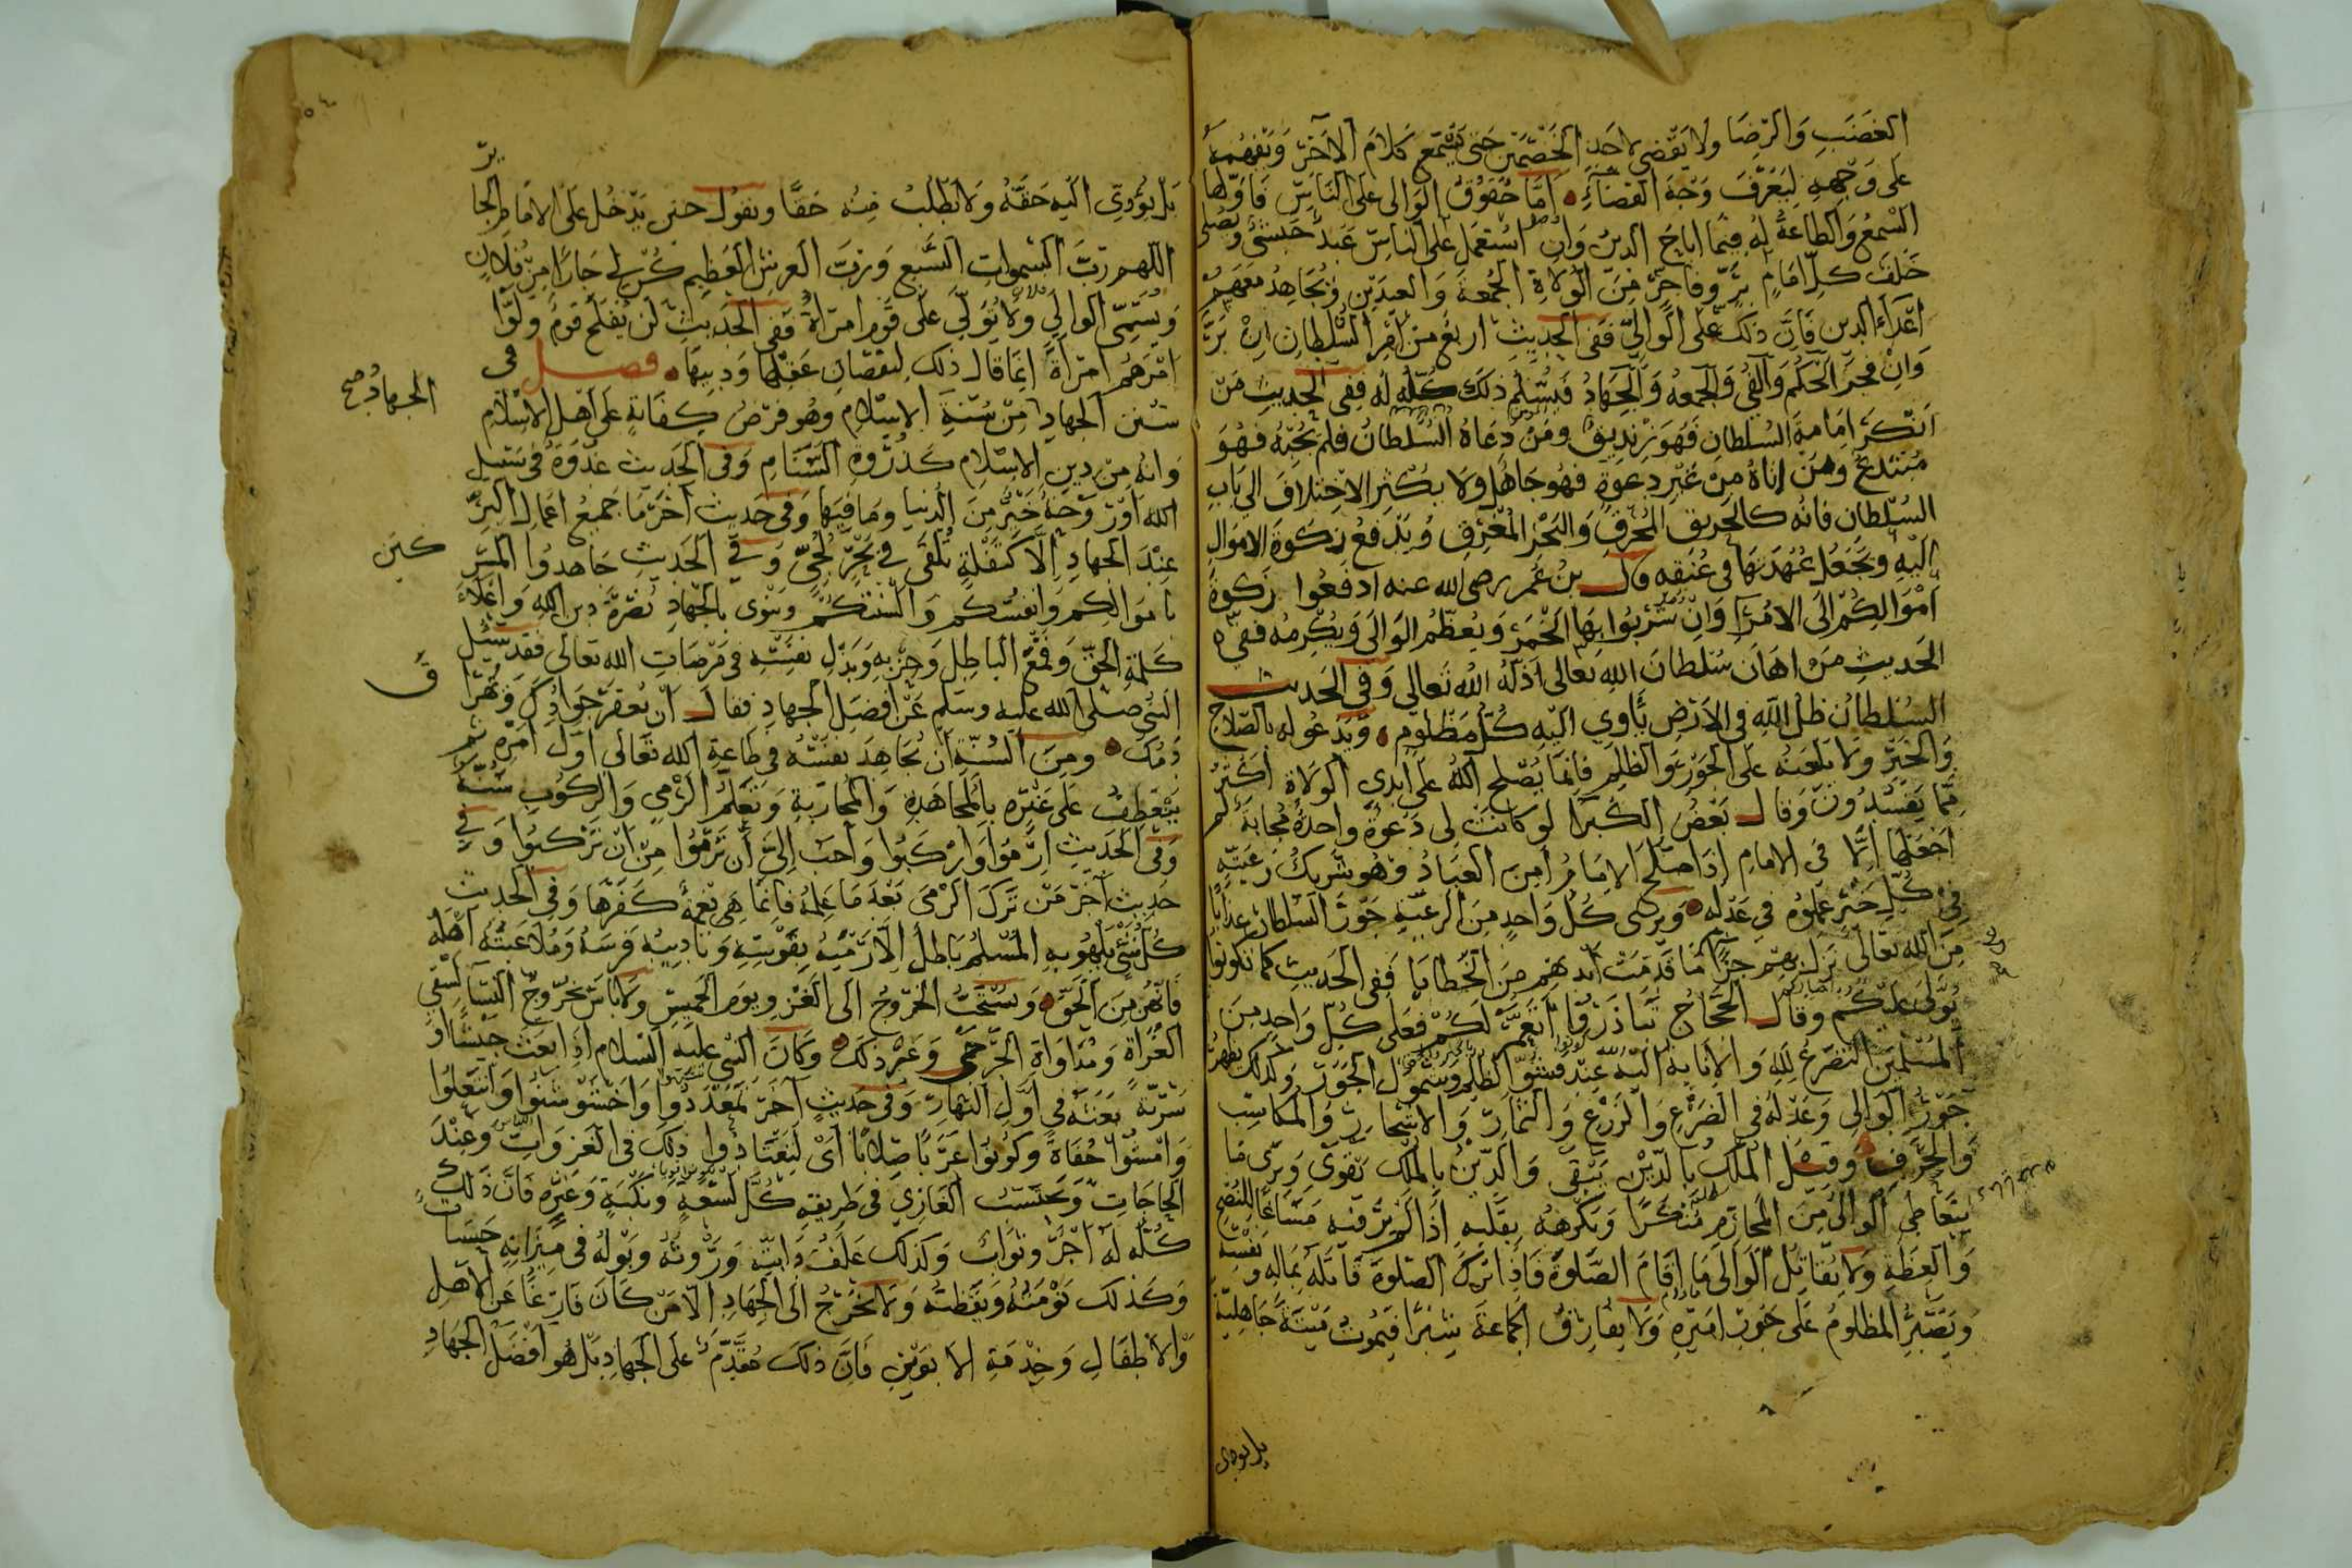 الغضب والرضا ولا يقضى لاحد الخصمين حتى يسمع كلام الآخر ويفهمه
على وجهه ليعرف وجه القضاء اما حقوق الوالى على الناس فاولها
السمع والطاعة له فيما اباح الدين وان استعمل على الناس عبد حبشى ويصلى
خلف كل امام بر وفاجر من الولاة الجمعة والعيدين ويجاهد معهم
اعداء الدين فان ذلك على الوالى ففى الحديث اربع من امر السلطان ان بر
وان فجر الحكم والفئ والجمعه والجهاد فيسلم ذلك كله له ففى الحديث من
انكر امامة السلطان فهو زنديق ومن دعاه السلطان فلم يجبه فهو
مبتدع ومن اتاه من غير دعوة فهو جاهل ولا يكثر الاختلاف الى باب
السلطان فانه كالحريق المحرق والبحر المغرق ويدفع زكوة الاموال
اليه ويجعل عهدتها فى عنقه وقال بن عمر رضى الله عنه ادفعوا زكوة
اموالكم الى الامرا وان شربوا بها الخمر ويعظم الوالى ويكرمه ففى
الحديث من اهان سلطان الله تعالى اذله الله تعالى وفى الحديث
السلطان ظل الله فى الارض يأوى اليه كل مظلوم ويدعو له بالصلاح
والخير ولا يلعنه على الجور والظلم فانما يصلح الله على ايدى الولاة اكثر
مما يفسدون وقال بعض الكبرا لو كانت لى دعوة واحدة مجابة لم
اجعلها الا فى الامام اذا صلح الامام أمن العباد وهو شريك رعيته
فى كل خير عملوه فى عدله ويرى كل واحد من الرعية جور السلطان عذابا
من الله تعالى نزل بهم جزا ما قدمت ايديهم من الخطايا ففى الحديث كما تكونوا
يولى عليكم وقال الحجاج لكم فعلى كل واحد من
المسلمين التضرع لله والانابة اليه عند فشو الظلم وشمول الجور وكذلك يظهر
جور الوالى وعدله فى الضرع والزرع والثمار والاشجار والمكاسب
والحرف وقيل الملك بالدين يبقى والدين بالملك يقوى ويرى ما
يتعاطى الوالى من المحارم منكرا ويكرهه بقلبه اذا لم ير فيه مساغا للنصح
والعظة ولا يقاتل الوالى ما اقام الصلوة فاذا ترك الصلوة قاتله بماله ونفسه
ويصبر المظلوم على جور اميره ولا يفارق الجماعة شبرا فيموت ميتة جاهلية
بل يودى
بل يؤدى اليه حقه ولا يطلب منه حقا ويقول حين يدخل على الامام الجا
ير
اللهم رب السموات السبع ورب العرش العظيم كن لى جارا من فلان
ويسمى الوالى ولا يولى على قوم امراة ففى الحديث لن يفلح قوم ولوا
امرهم امرأة انما قال ذلك لنقصان عقلها ودينها فصل فى
سنن الجهاد من سنة الاسلام وهو فرض كفاية على اهل الاسلام
الجهاد صح
وانه من دين الاسلام كذروة السنام وفى الحديث غدوة فى سبيل
الله او روحة خير من الدنيا وما فيها وفى حديث آخر ما جميع اعمال البر
عند الجهاد الا كتفلة تلقى فى بحر لجى وفى الحديث جاهدوا المشر
كين
باموالكم وانفسكم والسنتكم وينوى بالجهاد نصرة دين الله واعلاء
كلمة الحق وقمع الباطل وحزبه وبذل نفسه فى مرضات الله تعالى فقد سئل
النبى صلى الله عليه وسلم عن افضل الجهاد فقال ان يعقر جوادك ويهرا
ق
دمك ومن السنة ان يجاهد نفسه فى طاعة الله تعالى اول امره ثم
ينعطف على غيره بالمجاهدة والمحاربة وتعلم الرمى والركوب سنة
وفى الحديث ارموا واركبوا واحب الى ان ترموا من ان تركبوا وفى
حديث آخر من ترك الرمى بعد ما علمه فانما هى نعمة كفرها وفى الحديث
كل شئ يلهو به المسلم باطل الا رميه بقوسه وتاديبه فرسه وملاعبته اهله
فانهن من الحق ويستحب الخروج الى الغزو يوم الخميس ولا باس بخروج النسا لسقى
الغزاة ومداواة الجرحى وغير ذلك وكان النبى عليه السلام اذا بعث جيشا او
سرية بعثه فى اول النهار وفى حديث آخر تمعددوا واخشوشنوا وانتعلوا
وامشوا حفاة وكونوا عربا صلابا اى لتعتادوا ذلك فى الغزوات وعند
الحاجات ويحتسب الغازى فى طريقه كل لسعة ونكبة وغيره فان ذلك
كله له اجر وثواب وكذلك علف دابته وروثه وبوله فى ميزانه حسنات
وكذلك نومته ويقظته ولا يخرج الى الجهاد الا من كان فارغا عن الاهل
والاطفال وخدمة الابوين فان ذلك مقدم على الجهاد بل هو افضل الجهاد